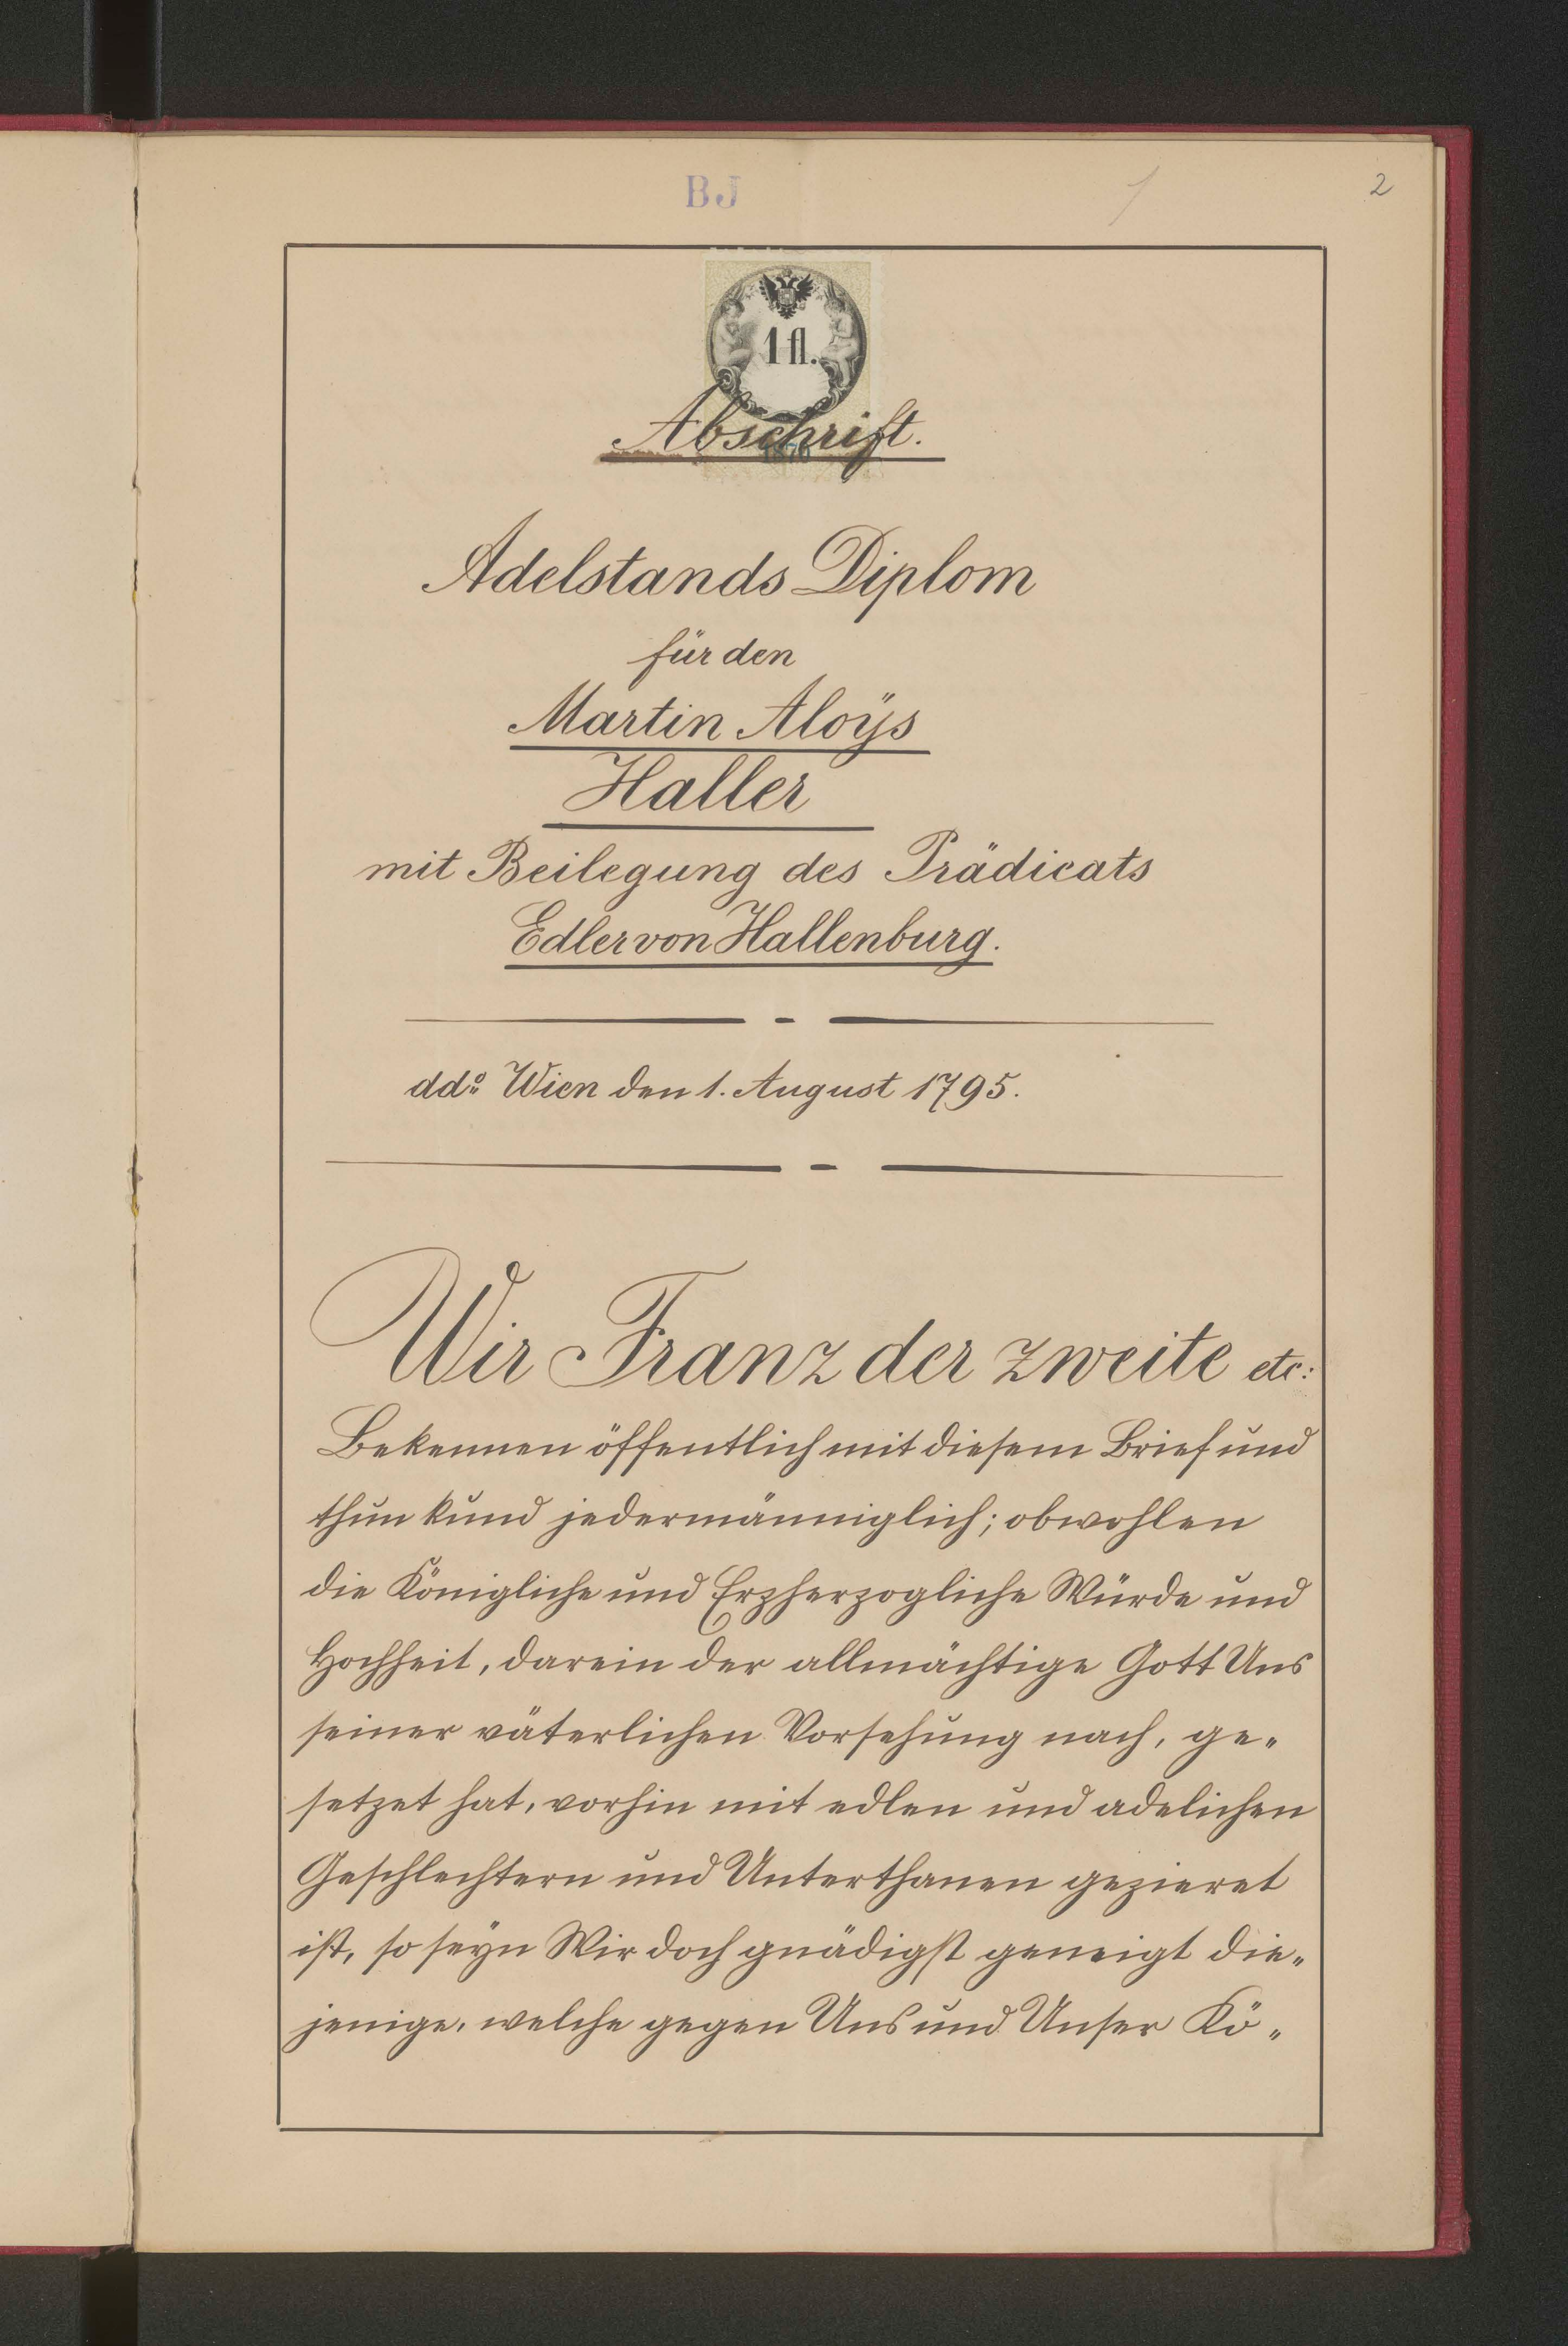 BJ
1
2
1 fl.
Abschrift.
Adelstands Diplom
für den
Martin Aloÿs
Haller
mit Beilegung des Prädicats
Edler von Hallenburg.
ddo Wien den 1. August 1795.
Wir Franz der zweite etc:
Bekennen öffentlich mit diesem Brief und
thun kund jedermänniglich; obwohlen
die Königliche und Erzherzogliche Würde und
Hochheit, darein der allmächtige Gott Uns
seiner väterlichen Vorsehung nach, ge„
setzet hat, vorhin mit edlen und adelichen
Geschlechtern und Unterthanen gezieret
ist, so seÿn Wir doch gnädigst geneigt die„
jenige, welche gegen Uns und Unser Kö„